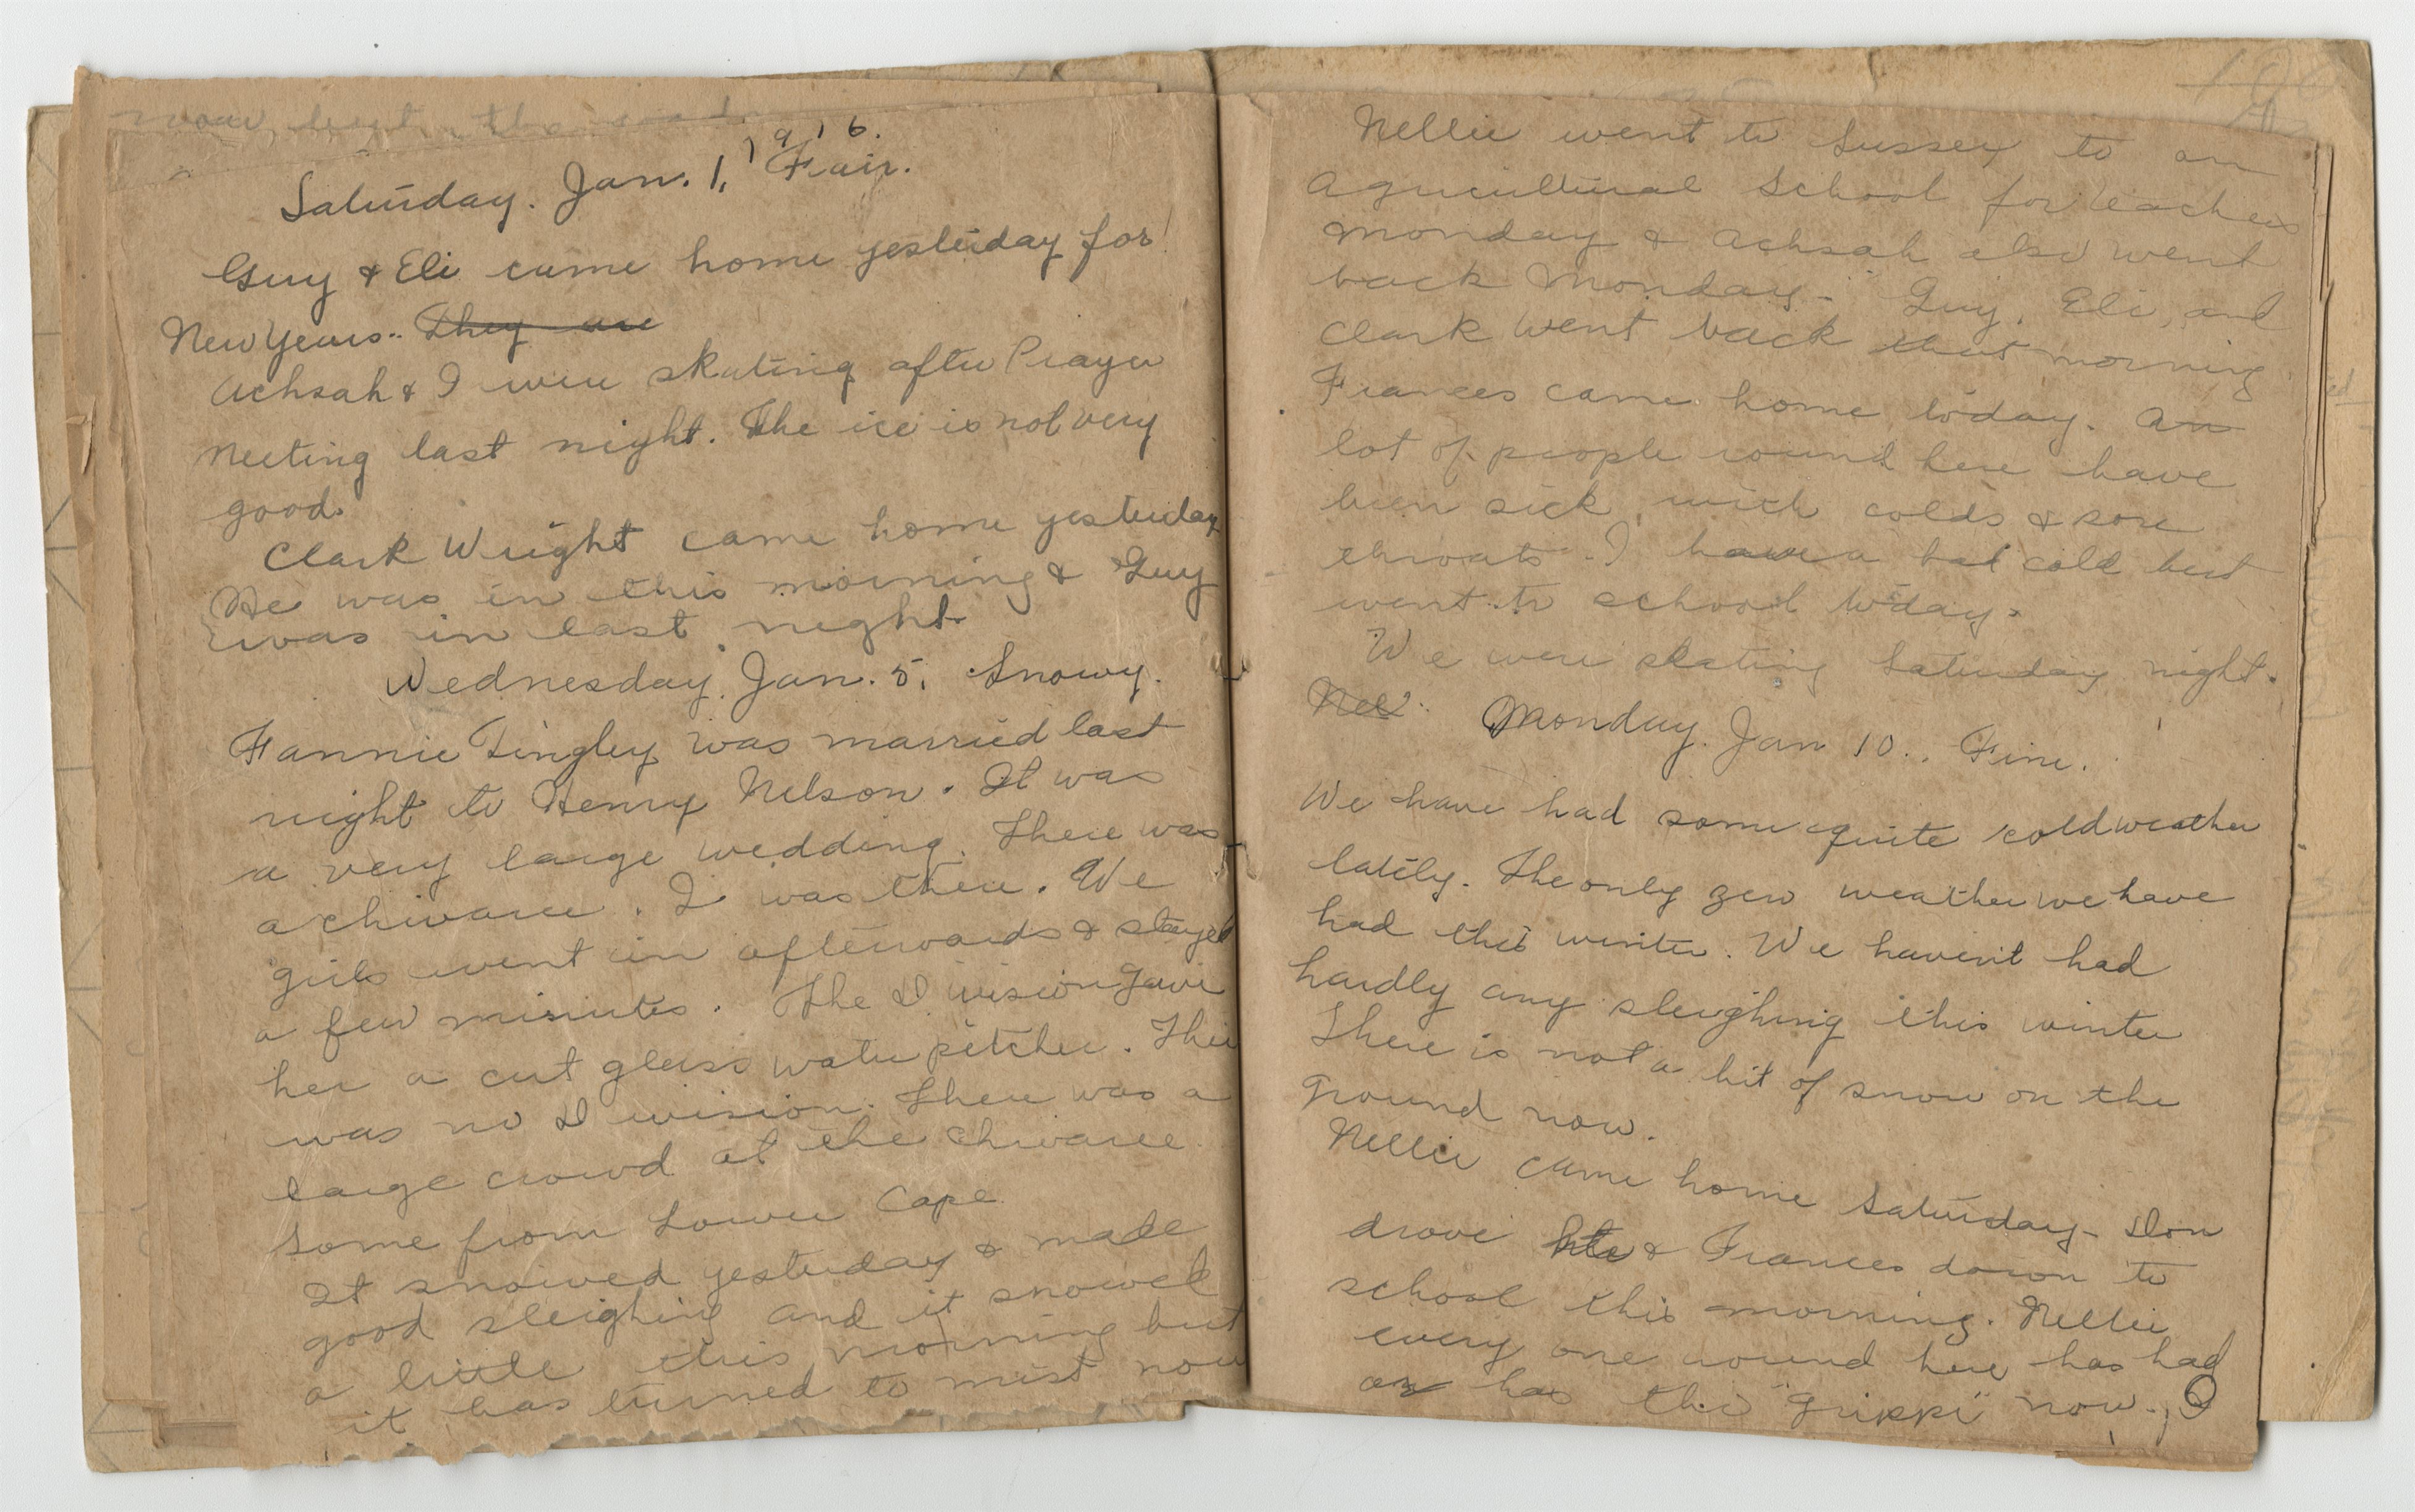 1916.
Saturday. Jan. 1, Fair.
Guy & Eli came home yesterday for
New Years. They are
Achsah & I were skating after Prayer
Meeting last night. The ice is not very
good.
Clark Wright came home yesterday
He was in this morning & Guy
was in last night.
Wednesday. Jan. 5. Snowy.
Fannie Tingley was married last
night to Henry Nelson. It was
a very large wedding. There was
a chivaree. I was there. We
girls went in afterwards & stayed
a few minutes. The Division gave
her a cut glass water pitcher. Ther
was no Division. There was a
large crowd at the chivaree
some from Lower Cape
It snowed yesterday & made
good sleighing and it snowed
a little this morning but
it has turned to mist now
Nellie went to Sussex to an
Agricultural School for teachers
Monday & Achsah also went
back Monday. Guy, Eli, and
Clark went back that morning
Frances came home today. An
lot of people round here have
been sick with colds & sore
throats. I have a bad cold but
went to school today.
We were skating Saturday night.
Nel Monday. Jan 10.. Fine.
We have had some quite cold weather
lately. The only zero weather we have
had this winter. We haven't had
hardly any sleighing this winter
There is not a bit of snow on the
ground now.
Nellie came home Saturday - Don
drove & Frances down to
school this morning. Nellie
every one round here has had
or has the "Grippe" now.